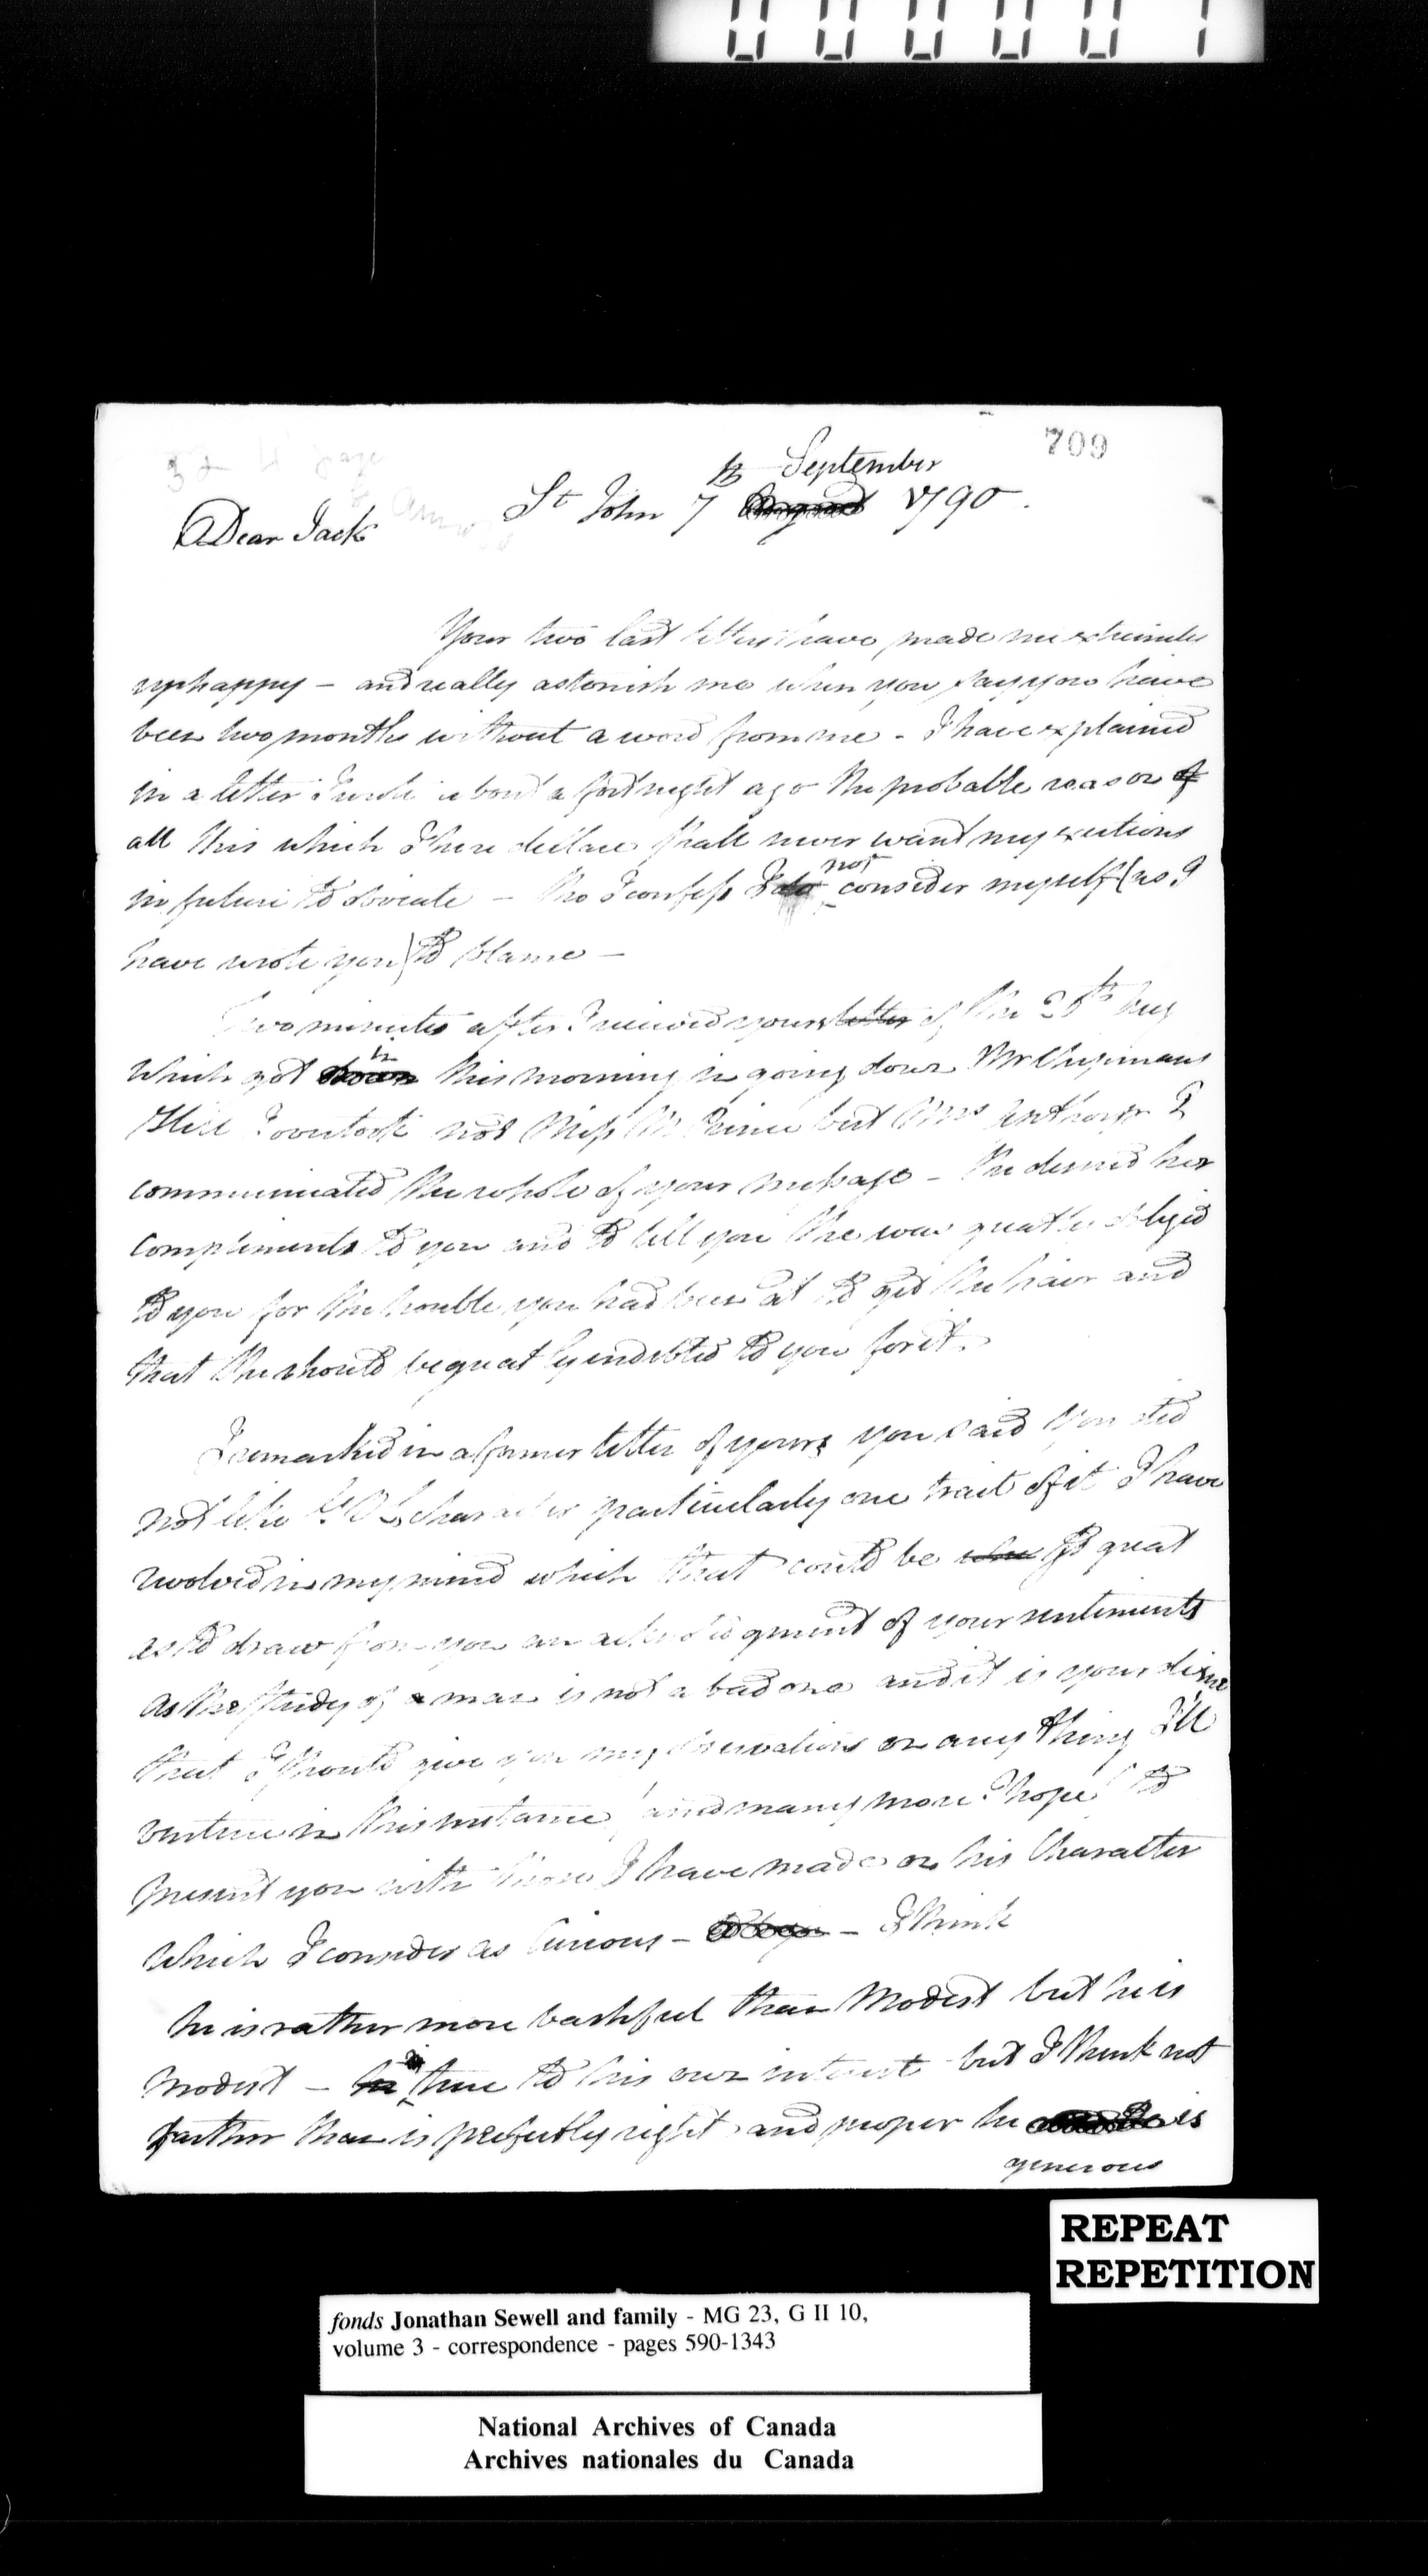 000001
709
St John 7th August September 1790.
Dear Jack
Your two last letters have made me extremely
unhappy – and really astonish me when you say you have
been two months without a word from me – I have explained
in a letter I wrote about a fortnight ago the probable reason of
all this which I here declare shall never want my exertions
in future to obviate – tho I confess I do not consider myself (as I
have wrote you) to blame –
Two minutes after I received yours letter of the Aug
which got down in this morning in going down Mr Chipmans
Hill I overtook not Miss M Prince but Mrs I
communicated the whole of your message – she desired her
compliments to you and to tell you she was greatly obliged
to you for the trouble you had been at to get the hair and
that she should be greatly indebted to you for it.
I remarked in a former letter of yours you said you did
not like character particularly one trait of it I have
revolved in my mind which that could be so great
as to draw from you an acknowledgment of your sentiments
As the study of a man is not a bad one and it is your desire
that I should give you my observations on any thing I'll
venture in this instance (and many more I hope) to
present you with those I have made on his Character
which I consider as Curious – – I think
he is rather more bashful than Modest but he is
modest – he is true to his own interest but I think not
farther than is perfectly right and proper he is
generous
REPEAT
REPETITION
fonds Jonathan Sewell and family - MG 23, G II 10,
volume 3 - correspondence - pages 590-1343
National Archives of Canada
Archives nationales du Canada